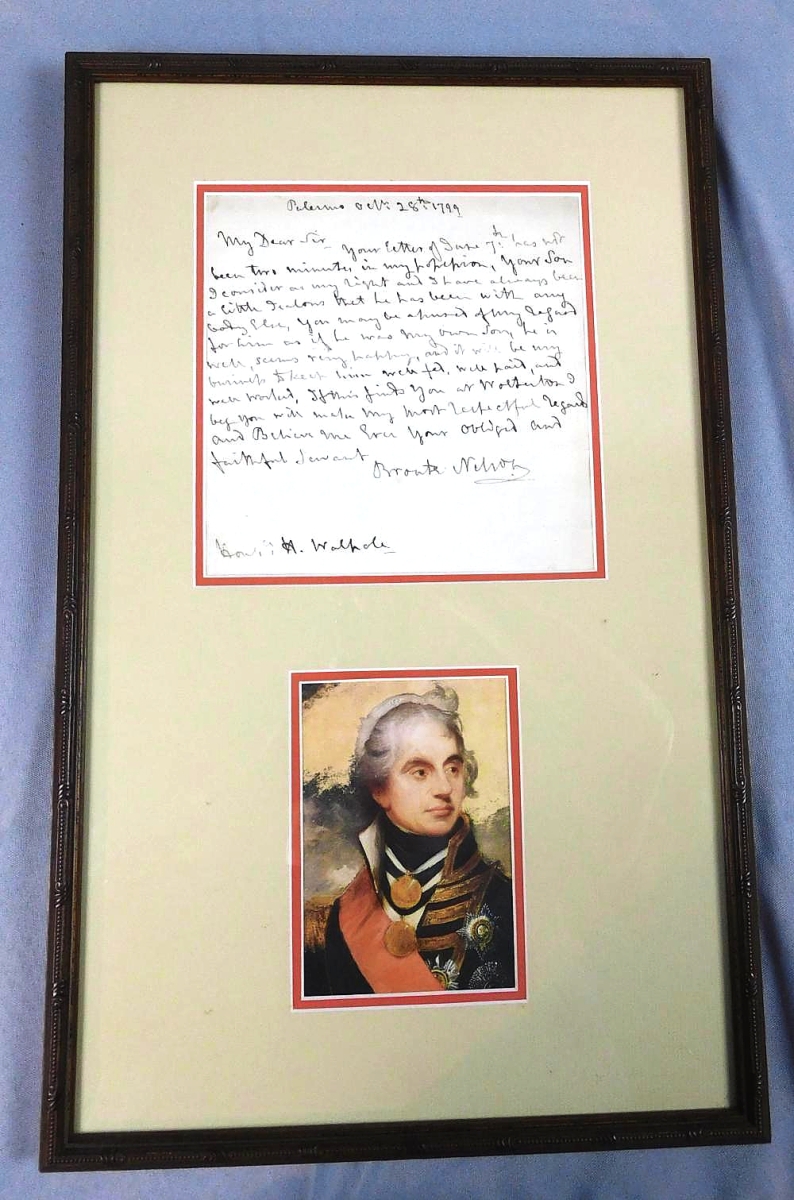 Palermo Octr: 28th: 1799
My Dear Sir
Your letter of June 7th: has not
been two minutes in my possession, Your Son
I consider as my right and I have always been
a little Jealous that he has been with any
body Else, You may be assured of my regard
for him as if he was my own Son, he is
well, seems very happy, and it will be my
business to keep him well fed, well paid, and
well worked, If this finds You at Wolterton I
beg you will make my most respectful regards
and Believe me Ever Your obliged and
faithful Servant
Bronte Nelson
Honble: H. Walpole